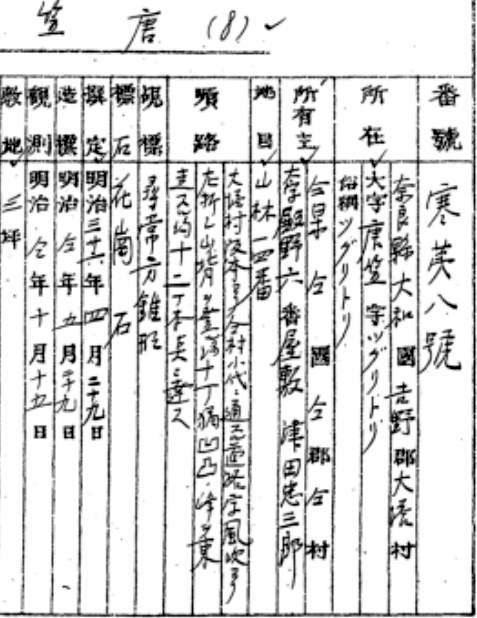 笠 唐 (8)
番號 寒英八號
所在 奈良縣大和國吉野郡大塔村
大字唐笠字ツグリトリ
俗稱ツグリトリ
所有主 仝県仝國仝郡仝村
殿野六番屋敷 津田忠三郎
地目 山林一四番
順路 大塔村阪本ヨリ仝村小代ニ通スル道路字風吹ヨリ
左折シ山背ヲ登ル十丁
十二丁本点ニ達ス
覘標 尋常方錐形
標石 花崗石
撰定 明治三十六年四月二十九日
造標 明治仝年五月二十九日
觀測 明治仝年十月十五日
敷地 三坪